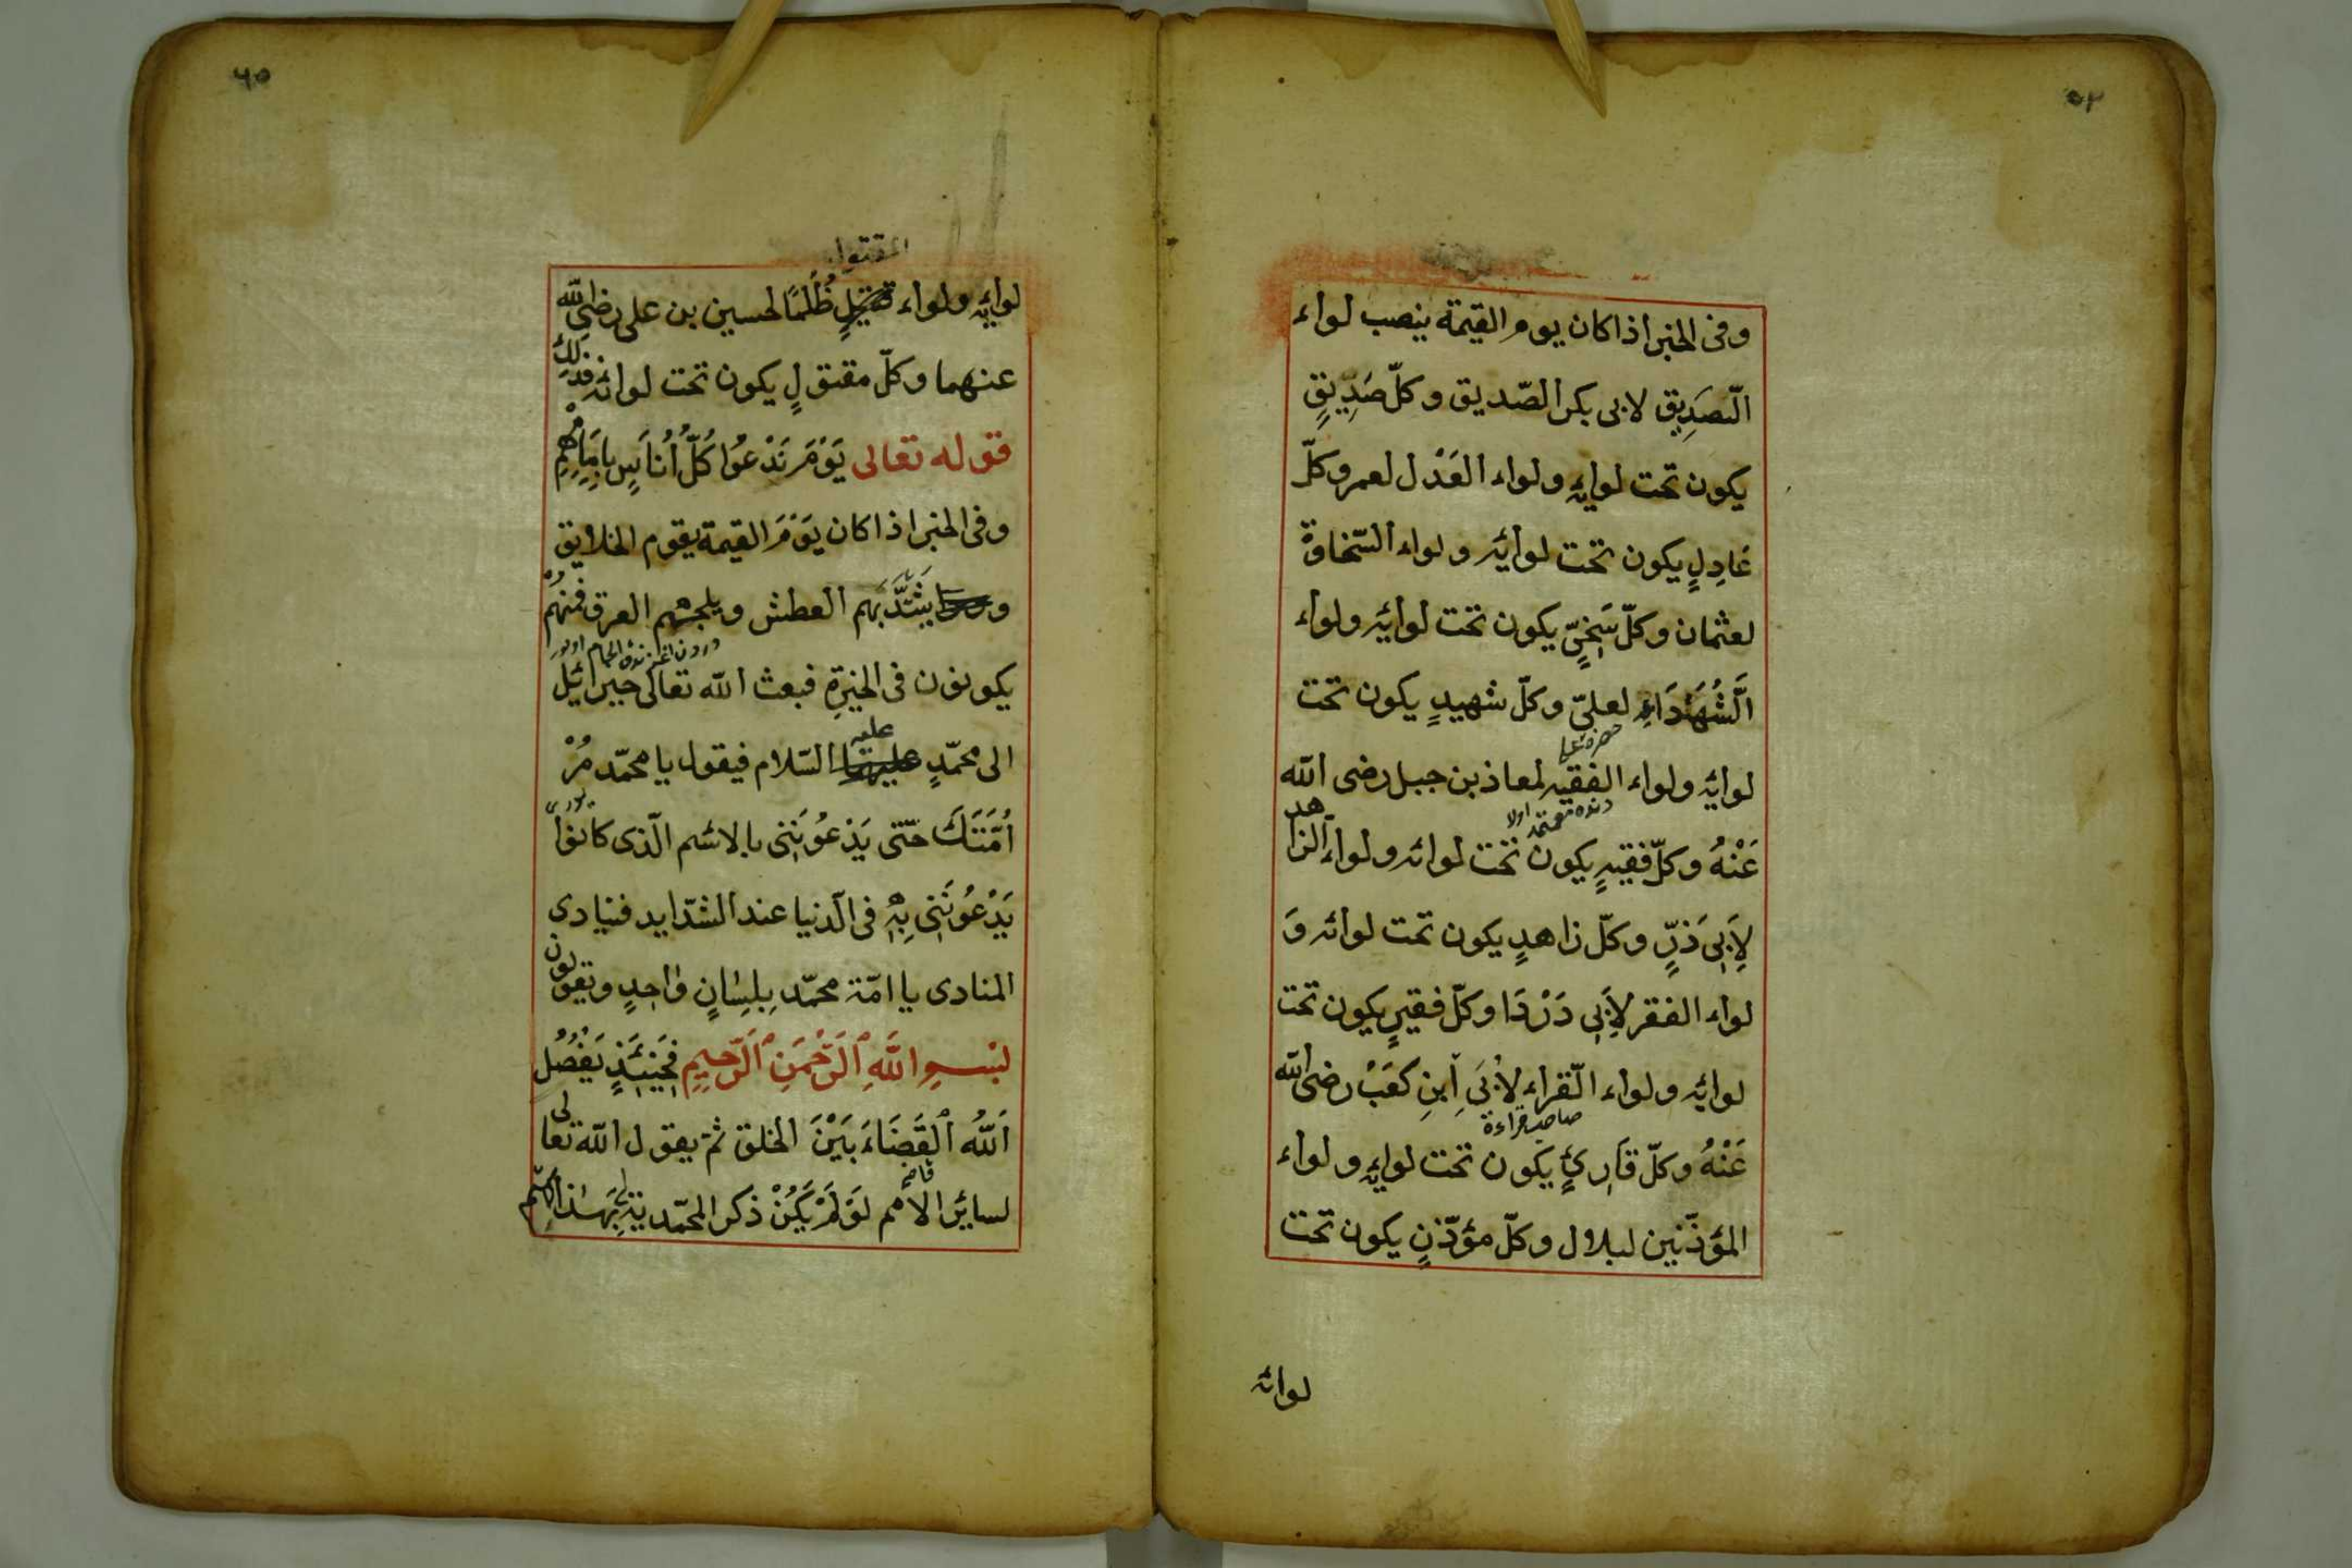 ٥٢
وفى الخبر اذا كان يوم القيمة ينصب لواء
الصَدِيق لابى بكر الصّديق وكلّ صَدِّيقٍ
يكون تحت لوايِه ولواء العَدْل لعمر وكلّ
عَادِلٍ يكون تحت لوائه ولواء السّخاوة
لعثمان وكلّ سَخِىٍّ يكون تحت لوائه ولواء
الشُهَدَاءِ لعلىّ وكلّ شهيدٍ يكون تحت
لوايِه ولواء الفقيه لمعاذ بن جبل رضى الله
عَنْهُ وكلّ فقيهٍ يكون تحت لوائه ولواء الزاهد
لِاَبِى ذَرٍّ وكلّ زاهدٍ يكون تحت لوائه وَ
لواء الفقر لِاَبِى دَرْدَا وكلّ فقيرٍ يكون تحت
لوايِه ولواء القراء لِاُبَىِ اَبنِ كَعَبْ رضى الله
صاحب قراءة
عَنْهُ وكلّ قَارِئٍ يكون تحت لوايِه ولواء
المؤذّنين لبلال وكلّ مؤذّنٍ يكون تحت
لوائه
٦٥
المقتول
لوايِه ولواء قتيلٍ ظُلْمًا لحسين بن على رضى الله
عنهما وكلّ مقتولٍ يكون تحت لوائه فذلك
قوله تعالى يَوْمَ نَدْعُوا كُلَّ اُنَاسٍ بِاِمَامِهِمْ
وفى الخبر اذا كان يَوْمَ القيمة يقوم الخلايق
و يشْتَدَّ بَهِم العطش ويلجمهم العرق فمنهُم
يكونون فى الحيرة فبعث الله تعالى جبرائيل
عليه
الى محمّدٍ عليهما السّلام فيقول يا محمّد مُرْ
اُمَّتَكَ حتّى يَدْعُونَنِى بالاسْم الّذى كانوا
يَدْعُونَنِى بِهِ فى الدّنيا عند الشدّايد فينادى
المنادى يا امّة محمّد بِلِسَانٍ وَاحِدٍ ويقولون
بْسمِ اللَّهِ الرَّحْمَنِ الرَّحِيمِ فَحِينَئِذٍ يَفْصُلُ
اَللَّهُ الْقَضَاءَ بَيْنَ الخلق ثمّ يقول الله تعالى
لسايْر الامم لَوْ لَمْ يَكُنْ ذكر المحمّدية بَهَذا الاسم